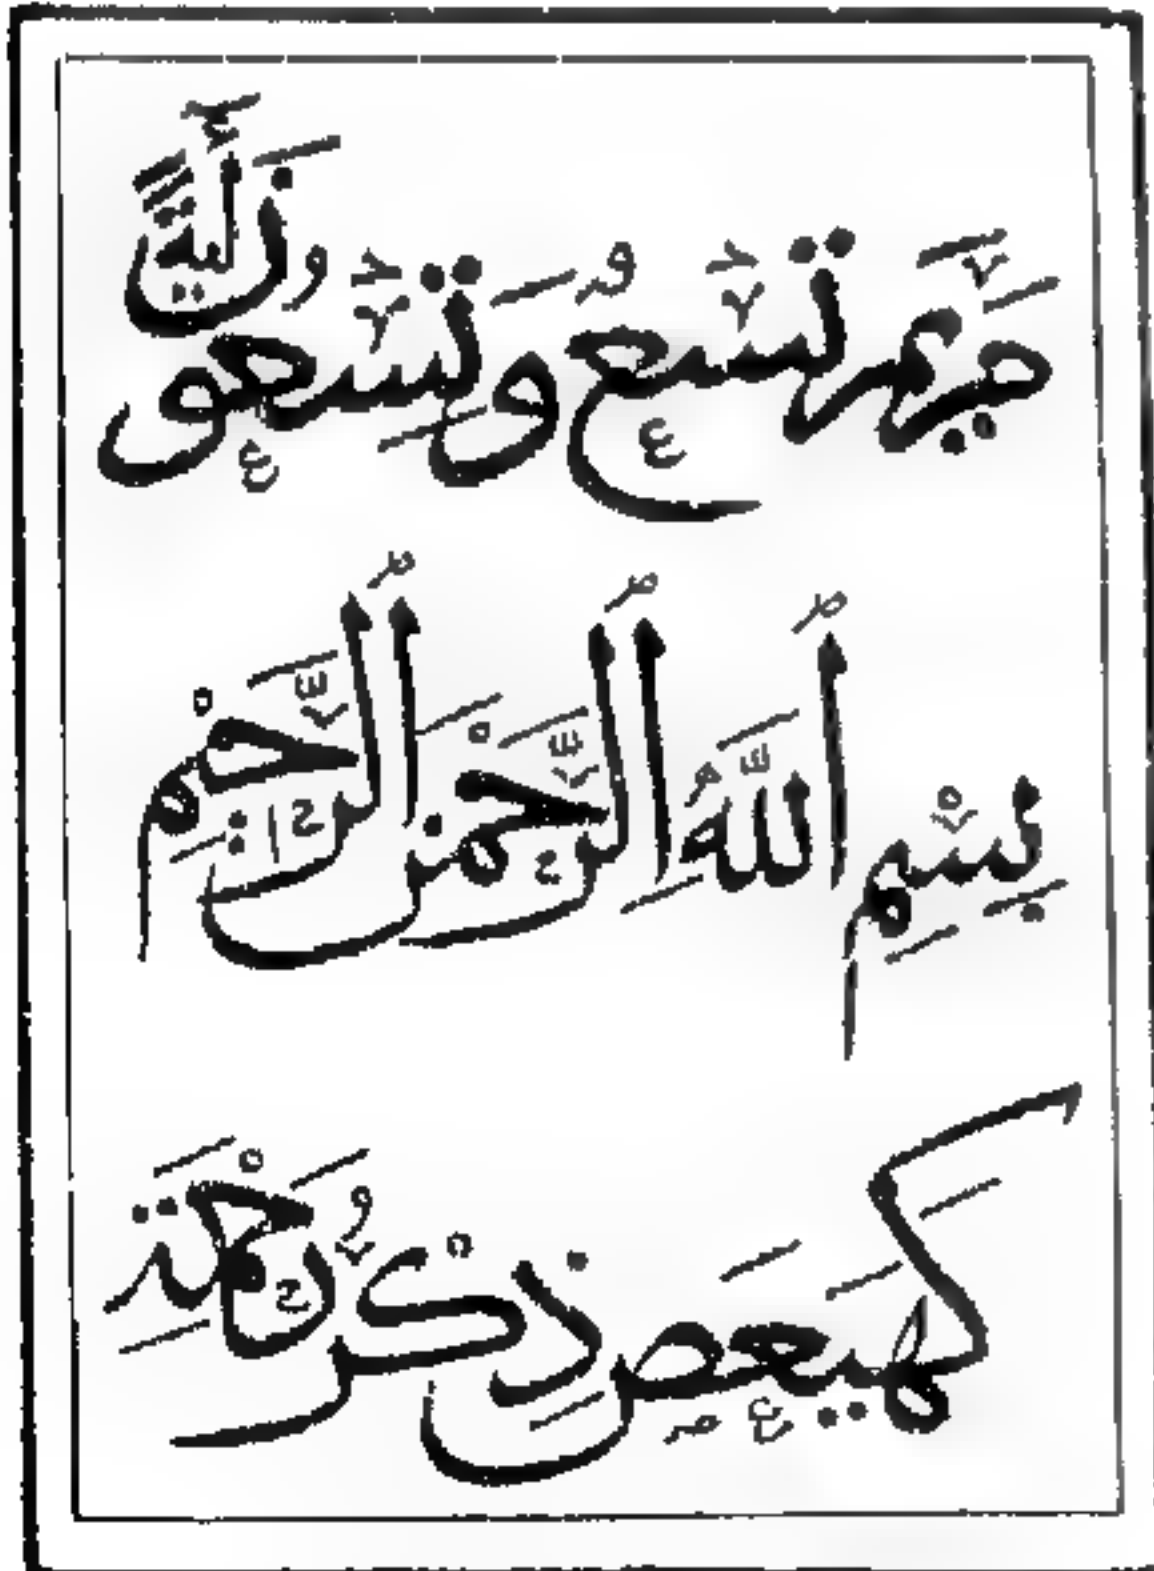 مريم تسع وتسعون ءاية
بِسْمِ ٱللَّهِ ٱلرَّحْمَنِ ٱلرَّحِيمِ
كهيعص ذِكْرُ رَحْمَتِ